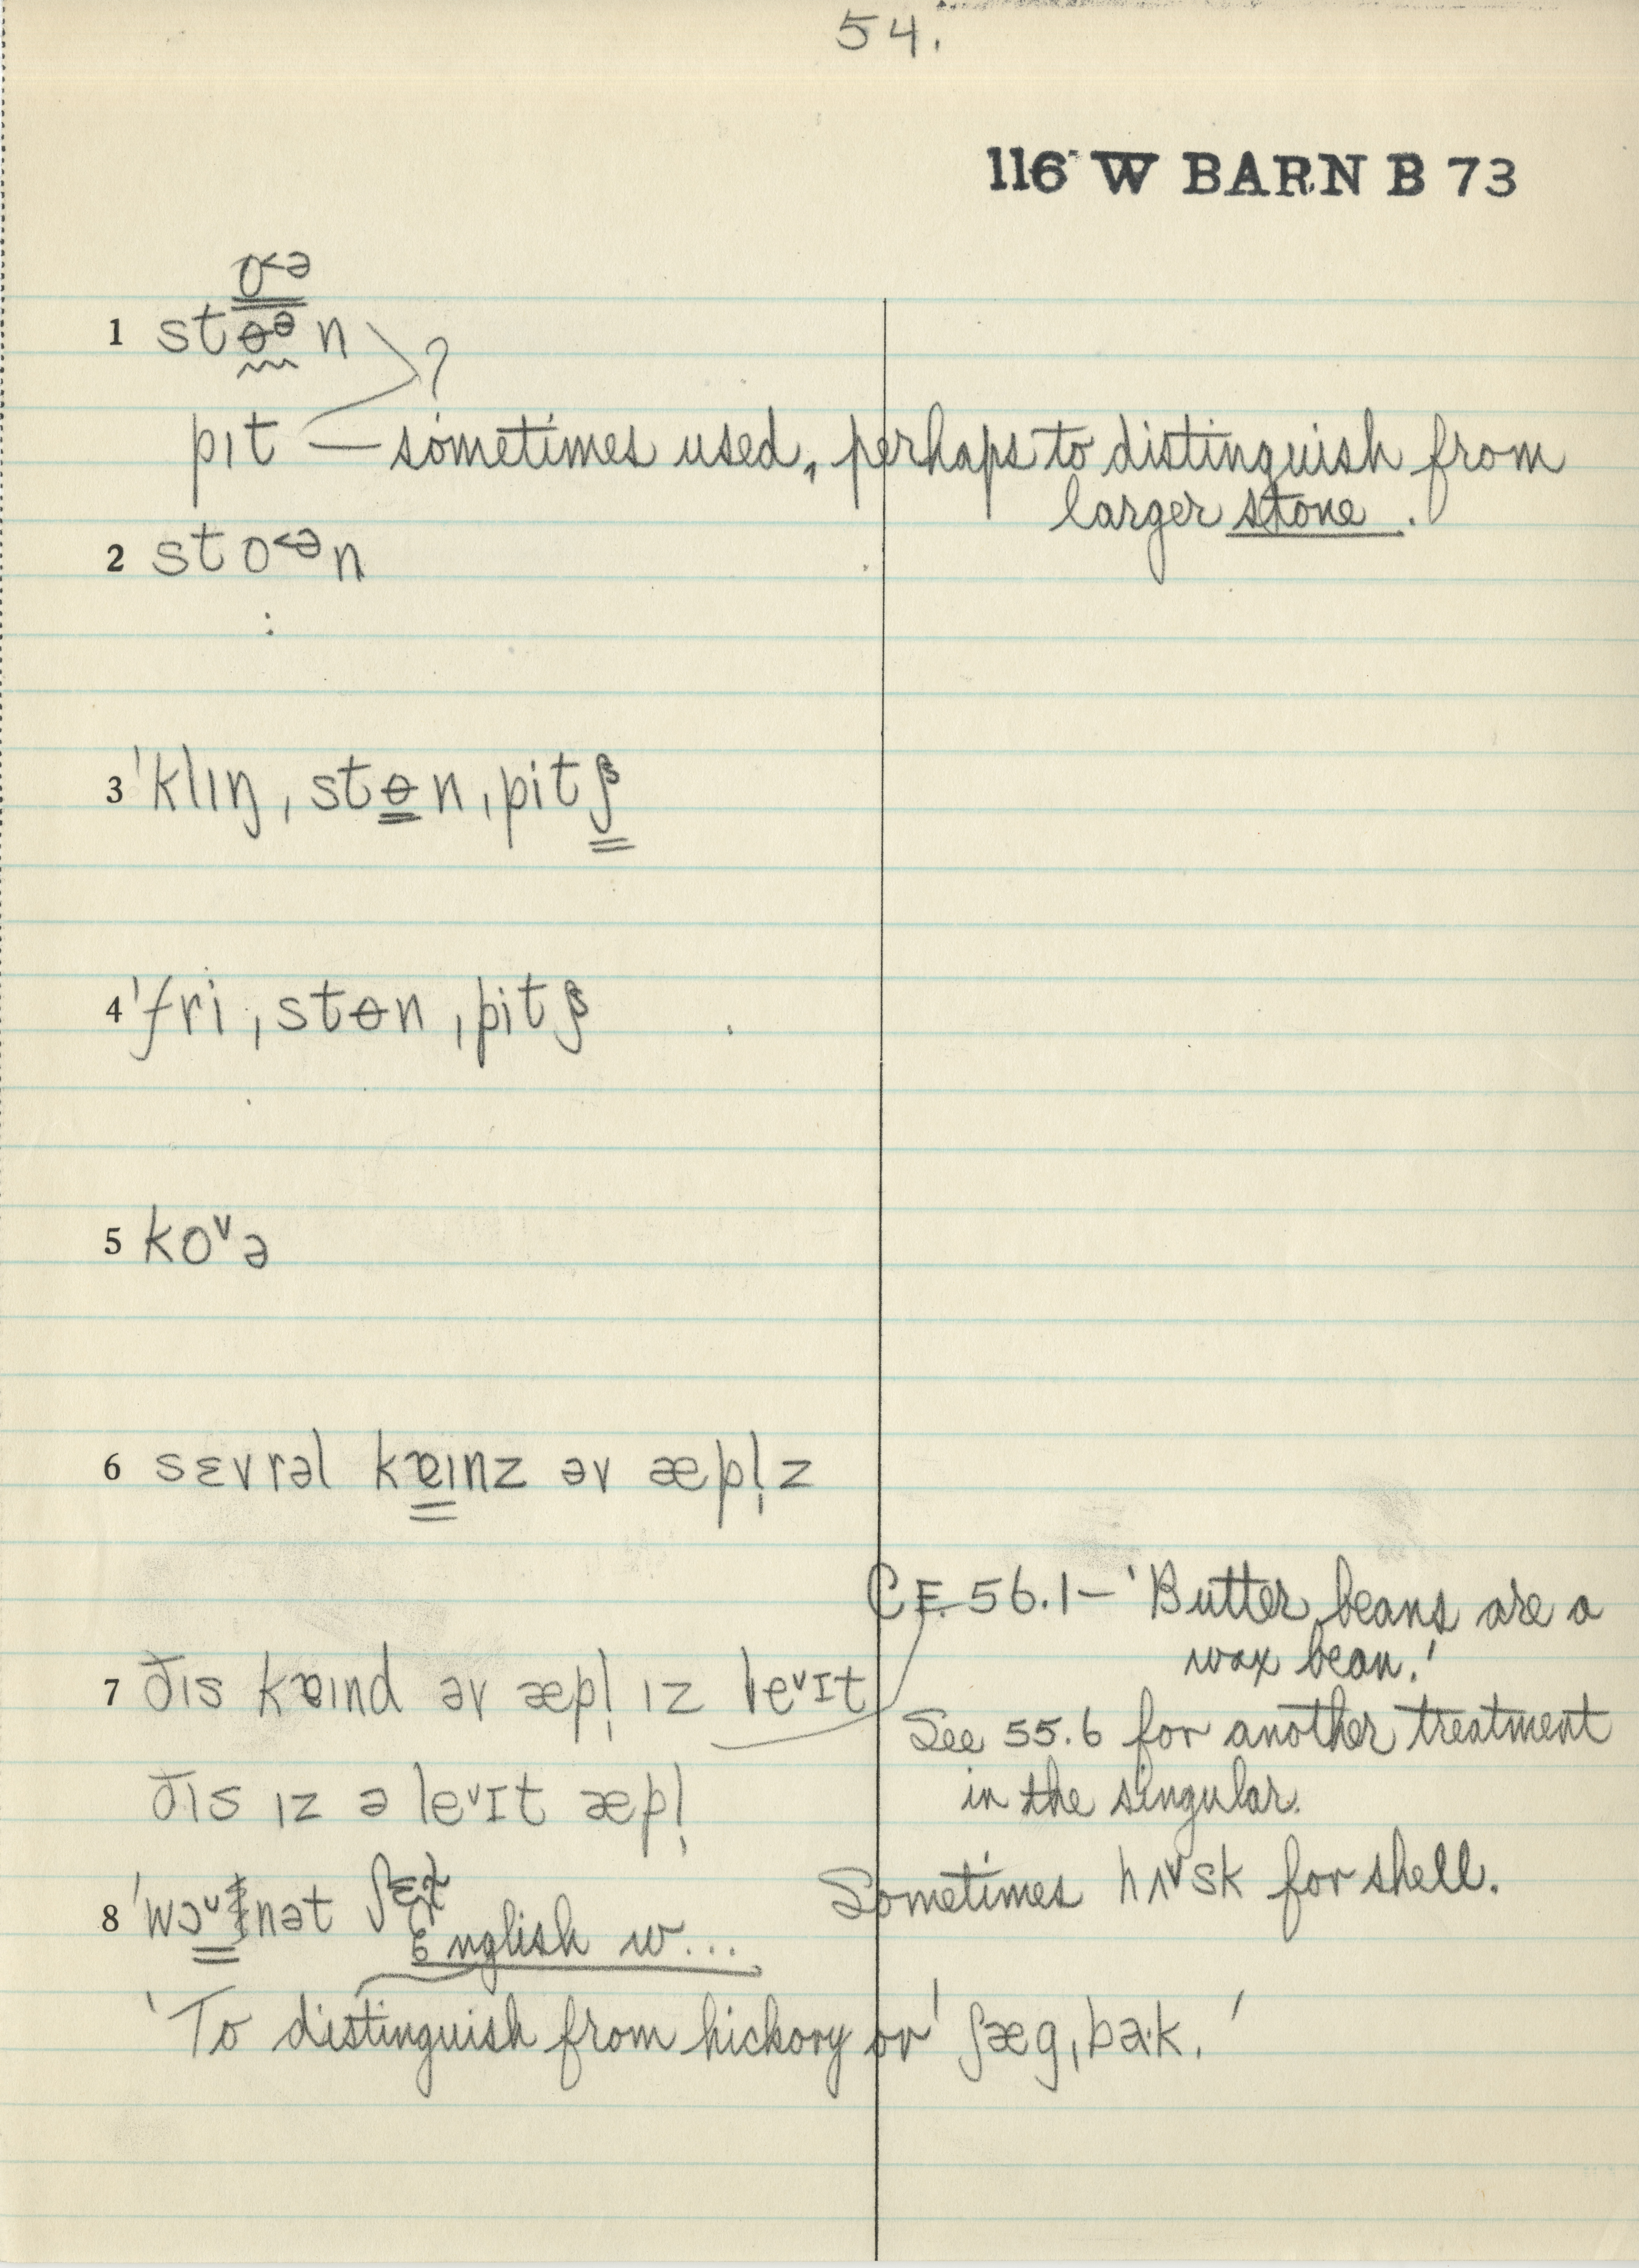 54.
116 W BARN B 73
o˂ə
1 stɵᶿn ?
pɪt — sometimes used, perhaps to distinguish from
larger stone.
2 sto˂ən
:
3 ˈklɪŋ ˌstɵn ˌpitʃ
4 ˈfri ˌstɵn ˌpitʃ
5 koᵛə
6 sɛvrəl kɐɪnz əv æpl̩z
CF. 56.1 – 'Butter beans are a
wax bean.'
7 ðɪs kɐɪnd əv æpl̩ ɪz leᵛɪt
See 55.6 for another treatment
in the singular.
ðɪs ɪz ə leᵛɪt æpl̩
Sometimes hʌᵛsk for shell.
8 ˈwɔᵛɫnət ʃɛɫ
English w...
'To distinguish from hickory or ˈʃægˌbak.'